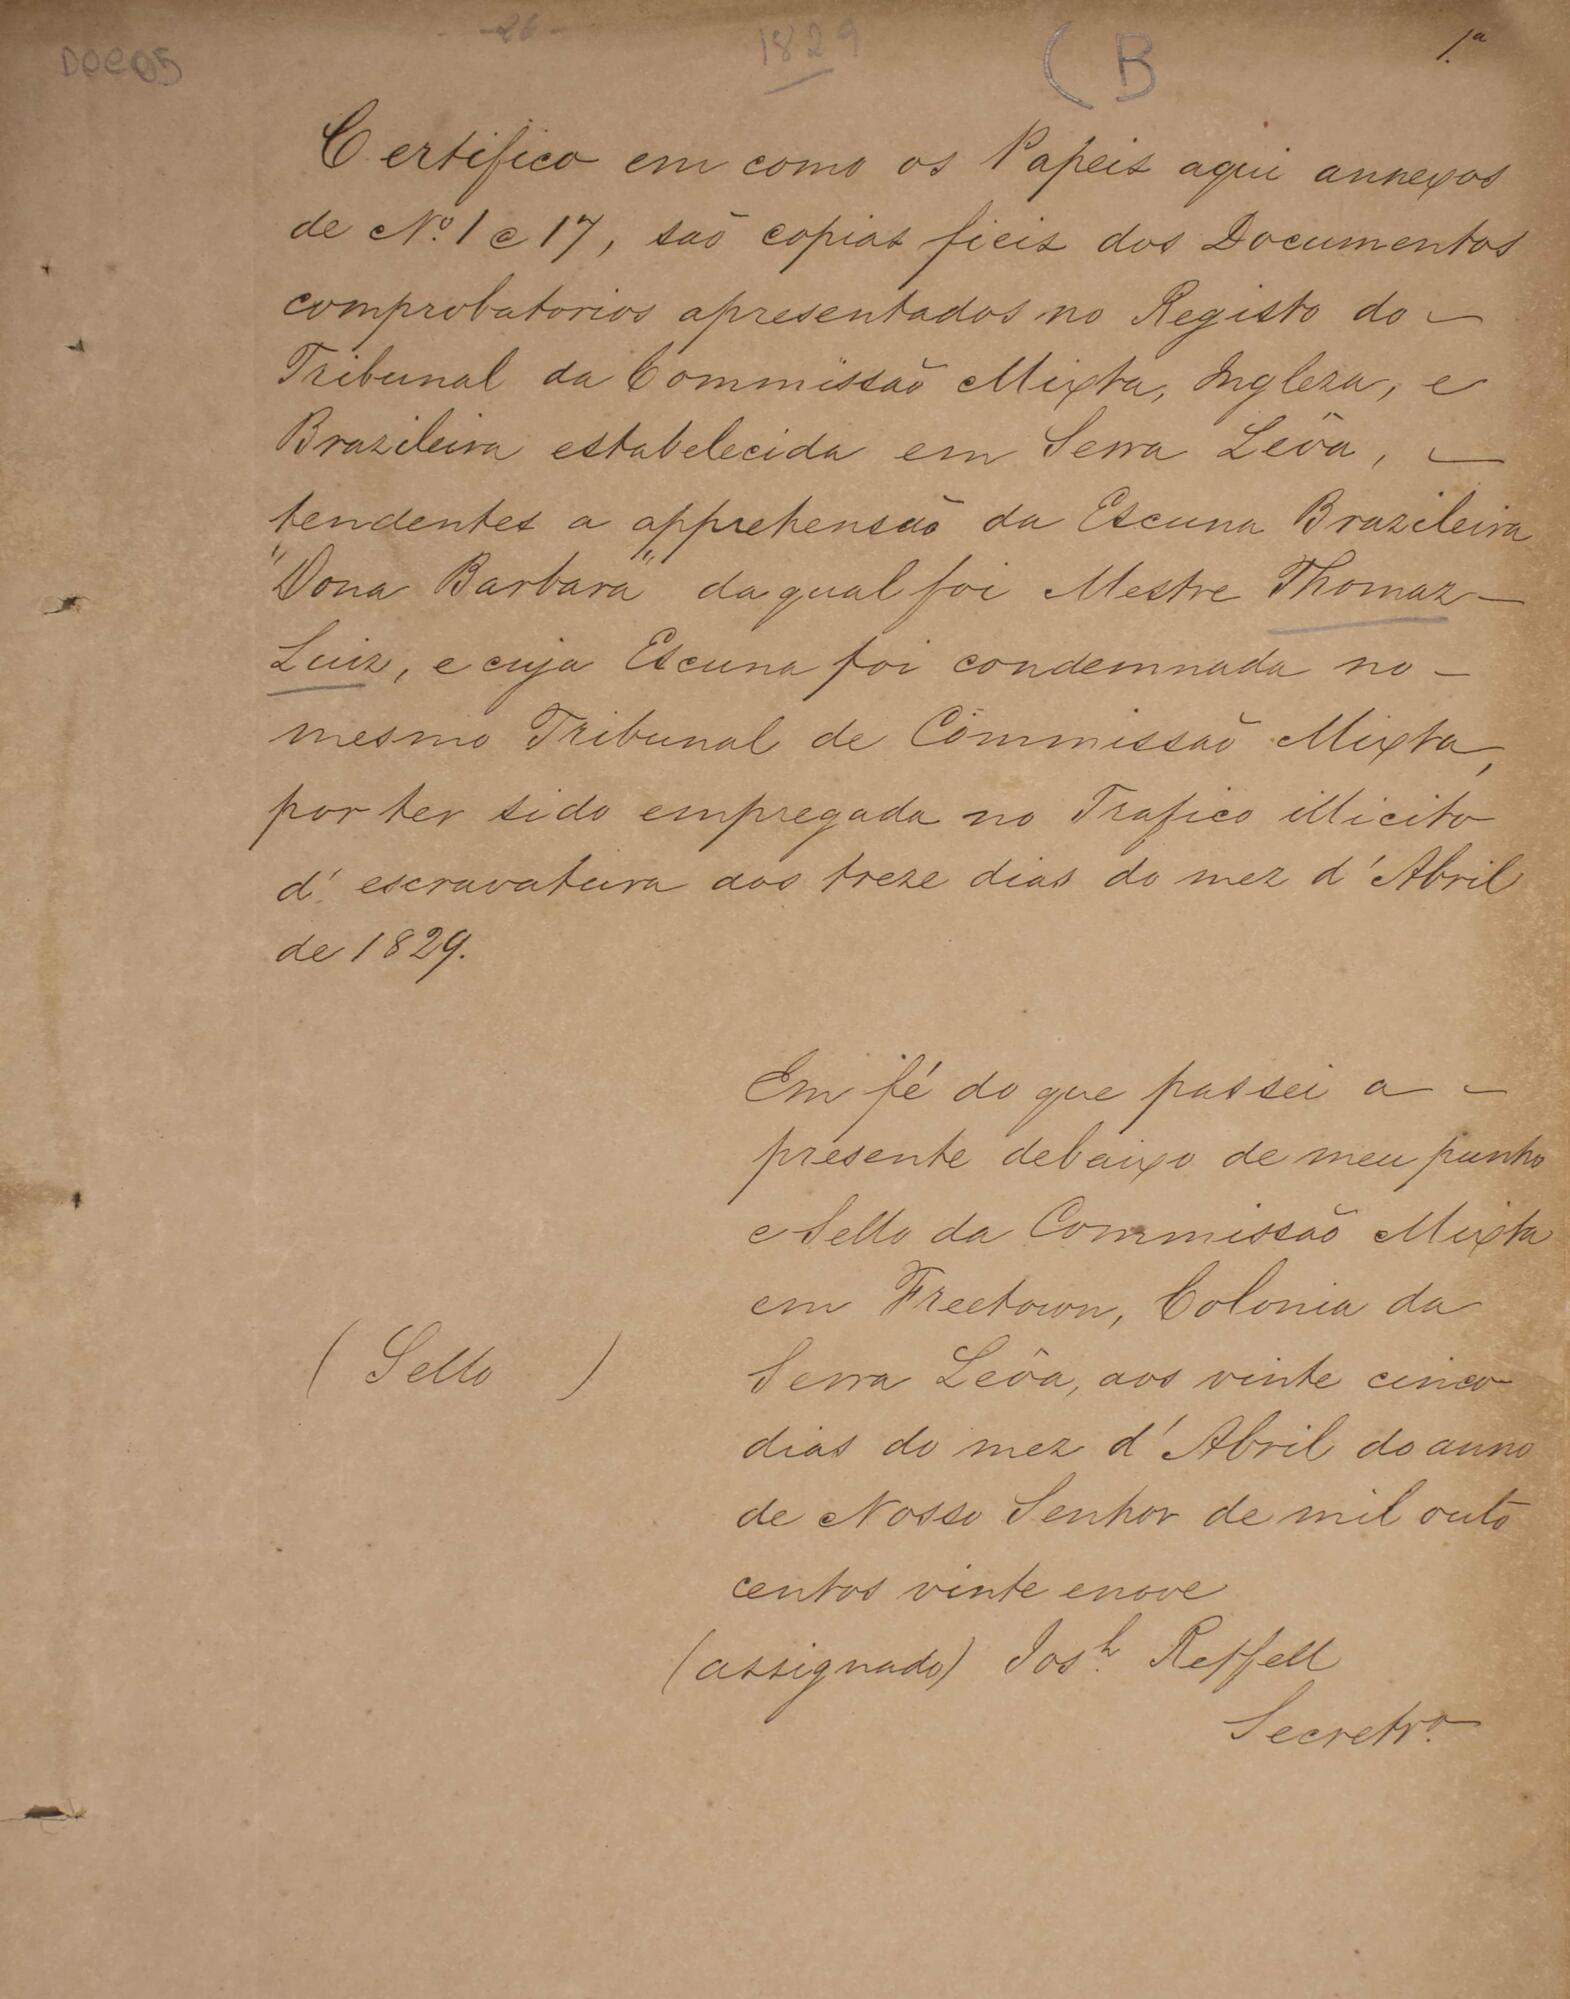 DOC 05
-26-
1829
(B
1.ª
Certifico em como os Papeis aqui annexos
de Nº. 1 a 17, saõ copias fieis dos Documentos
comprobatorios apresentados no Registo do —
Tribunal da Commissaõ Mixta, Ingleza, e
Brazileira estabelecida em Serra Leôa, —
tendentes a apprehensaõ da Escuna Brazileira
"Dona Barbara" da qual foi Mestre Thomaz —
Luiz, e cuja Escuna foi condemnada no —
mesmo Tribunal de Commissaõ Mixta,
por ter sido empregada no Trafico illicito
d'escravatura aos treze dias do mez d'Abril
de 1829.
Em fé do que passei a —
presente debaixo de meu punho
e Sello da Commissaõ Mixta
em Freetown, Colonia da
( Sello )
Serra Leôa, aos vinte cinco
dias do mez d'Abril do anno
de Nosso Senhor de mil outo
centos vinte e nove
(assignado) Josh. Reffell
Secretrº.